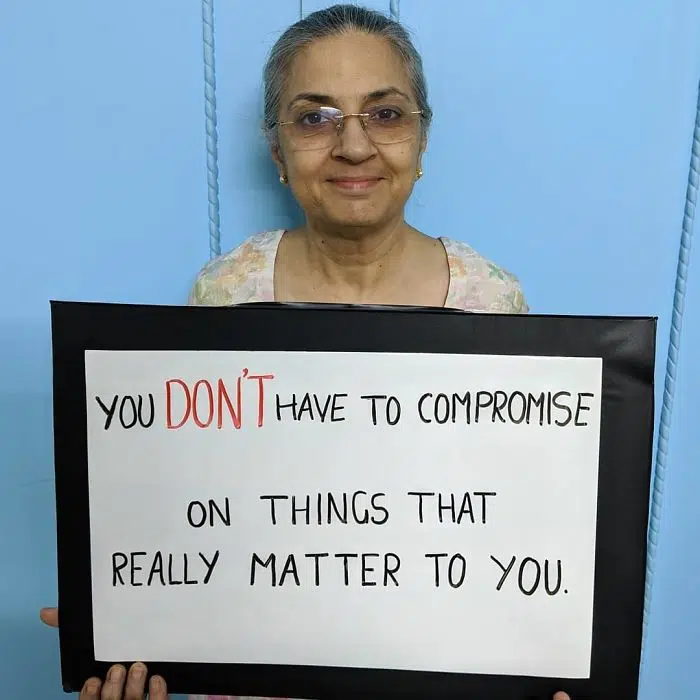 YOU DON'T HAVE TO COMPROMISE
ON THINGS THAT
REALLY MATTER TO YOU.